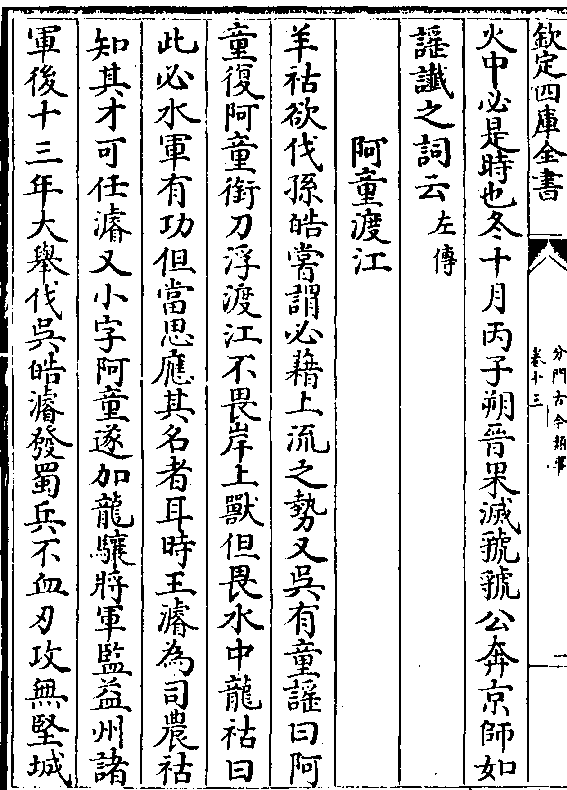 欽定四庫全書
分門古今類事
卷十三
火中必是時也冬十月丙子朔晉果滅虢虢公奔京師如
謡讖之詞云左傳
阿童渡江
羊祜欲伐孫皓嘗謂必藉上流之勢又吳有童謡曰阿
童復阿童銜刀浮渡江不畏岸上獸但畏水中龍祜曰
此必水軍有功但當思應其名者耳時王濬為司農祜
知其才可任濬又小字阿童遂加龍驤將軍監益州諸
軍後十三年大舉伐吳皓濬發蜀兵不血刃攻無堅城